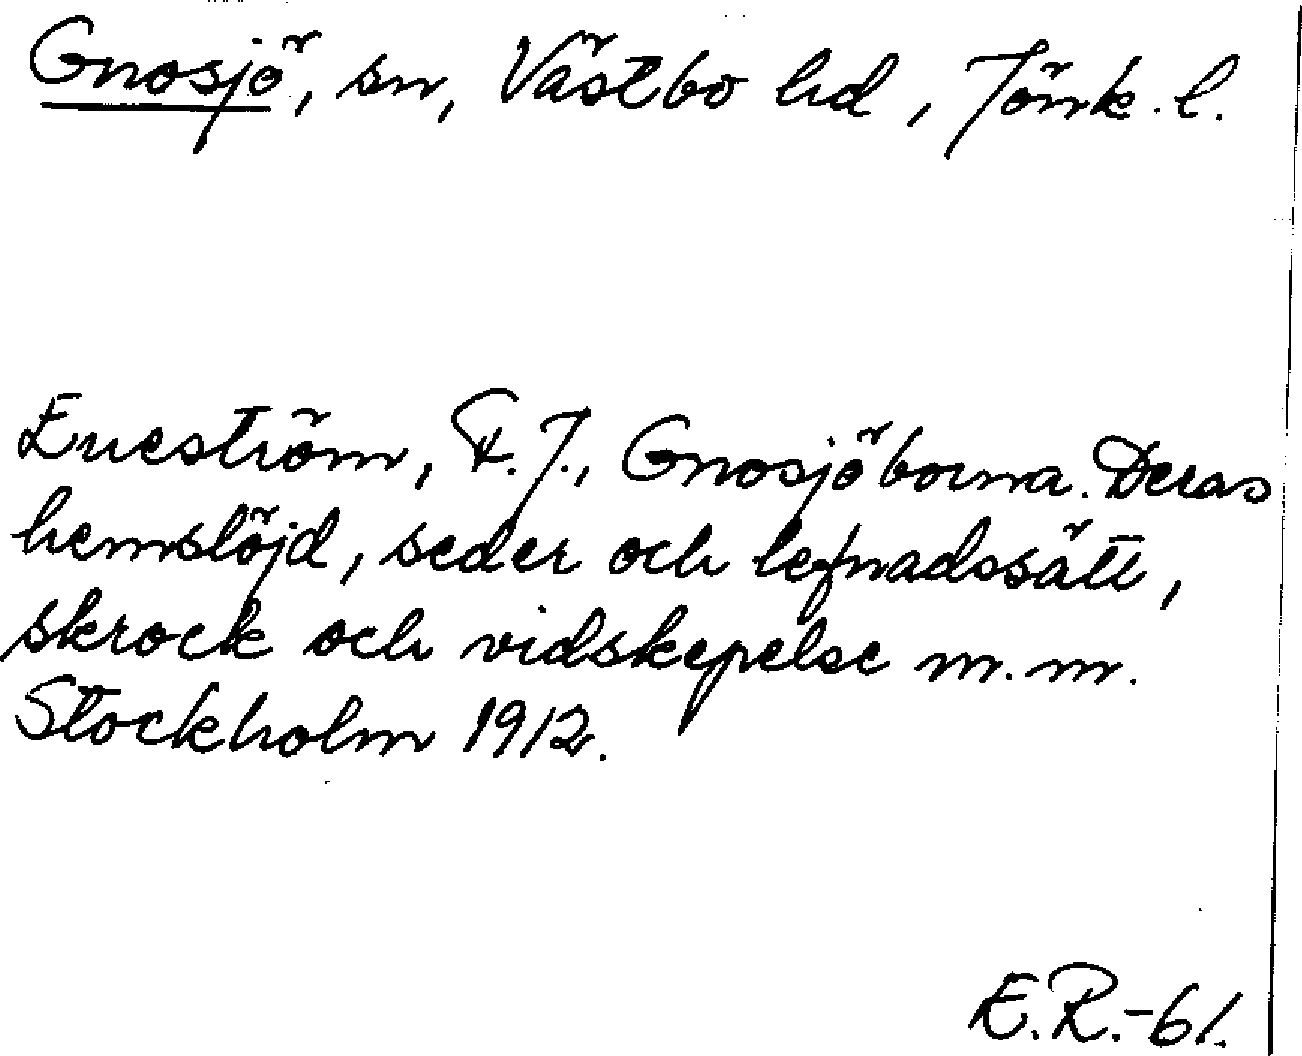 Gnosjö, sn, Västbo hd, Jönk. l.
Eneström, F. J., Gnosjöborna. Deras
hemslöjd, seder och lefnadssätt,
skrock och vidskepelse m. m.
Stockholm 1912.
E.R.-61.